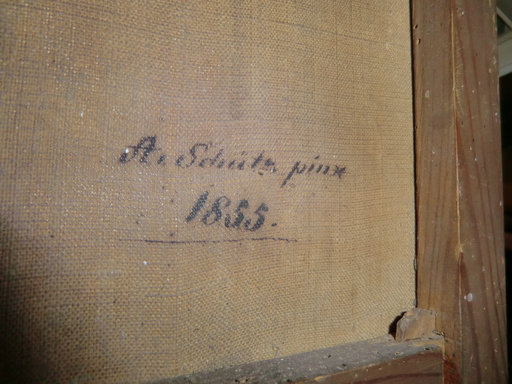 A. Schütz pinx
1855.